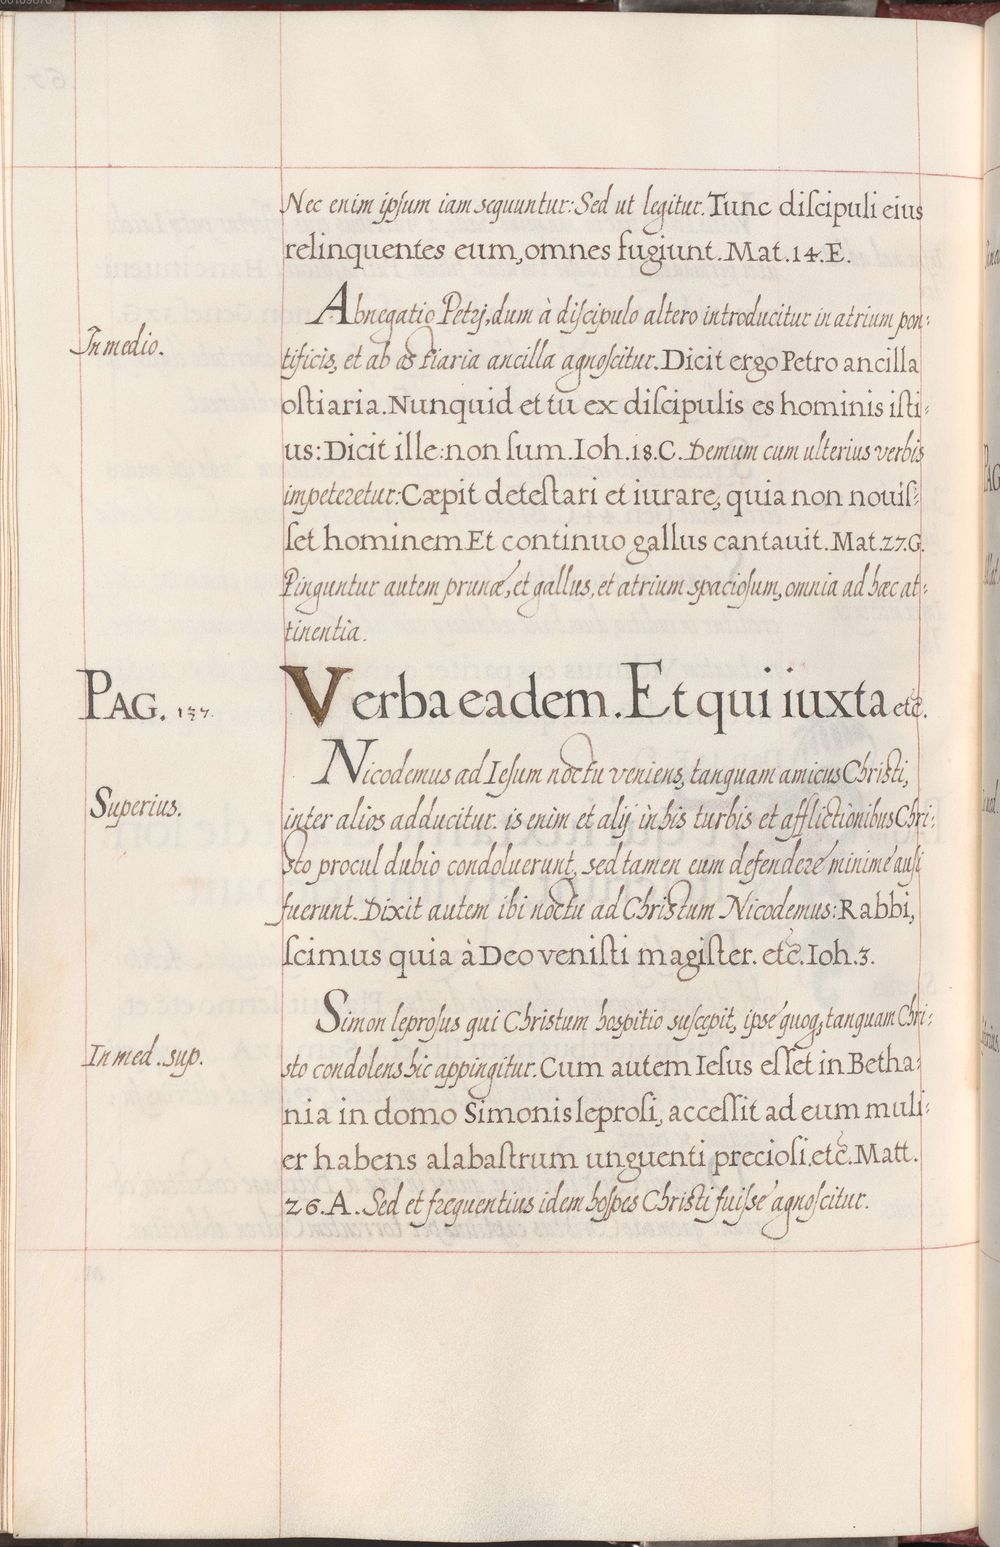 Nec enim ipſum iam sequuntur: Sed ut legitur. Tunc diſcipuli eius
relinquentes eum, omnes fugiunt. Mat. 14. E.
In medio.
Abnegatio Petrj, dum à diſcipulo altero introducitur in atrium pon-
tificis, et ab ostiaria ancilla agnoſcitur. Dicit ergo Petro ancilla
oſtiaria. Nunquid et tu ex diſcipulis es hominis iſti-
us: Dicit ille: non ſum. Ioh. 18. C. Demum cum ulterius verbis
impeteretur: Cæpit deteſtari et iurare, quia non nouiſ-
ſet hominem Et continuo gallus cantauit. Mat. 27. G.
Pinguntur autem prunæ, et gallus, et atrium spacioſum, omnia ad hæc at-
tinentia.
PAG. 137.
Verba eadem. Et qui iuxta etc.
Superius.
Nicodemus ad Ieſum noctu veniens, tanquam amicus Christi,
inter alios adducitur. is enim et alij in his turbis et afflictionibus Chri-
sto procul dubio condoluerunt, sed tamen eum defendere minime auſi
fuerunt. Dixit autem ibi noctu ad Christum Nicodemus: Rabbi,
ſcimus quia à Deo veniſti magiſter. etc. Ioh. 3.
In med. sup.
Simon leproſus qui Christum hospitio suſcepit, ipse quoq, tanquam Chri-
sto condolens hic appingitur. Cum autem Ieſus eſſet in Betha-
nia in domo Simonis leproſi, acceſſit ad eum muli-
er habens alabaſtrum unguenti precioſi. etc. Matt.
26. A. Sed et frequentius idem hoſpes Christi fuiſse agnoſcitur.